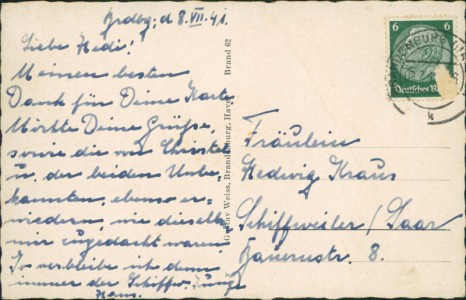 Brdbg; d 8.VII.41.
Liebe Hedi!
Meinen besten
Dank für Deine Karte
Möchte Deine Grüße,
sowie die von Christel
u. der beiden Unbe-
kannten, ebenso er-
wiedern, wie dieselb.
mir zugedacht waren
So verbleibe ich denn
immer der Schiffw. Junge
Hans.
Gustav Weiss, Brandenburg, Havel Brand 62
6
Deutsches
Fräulein
Hedwig Kraus
Schiffweiler / Saar
Bauernstr. 8.